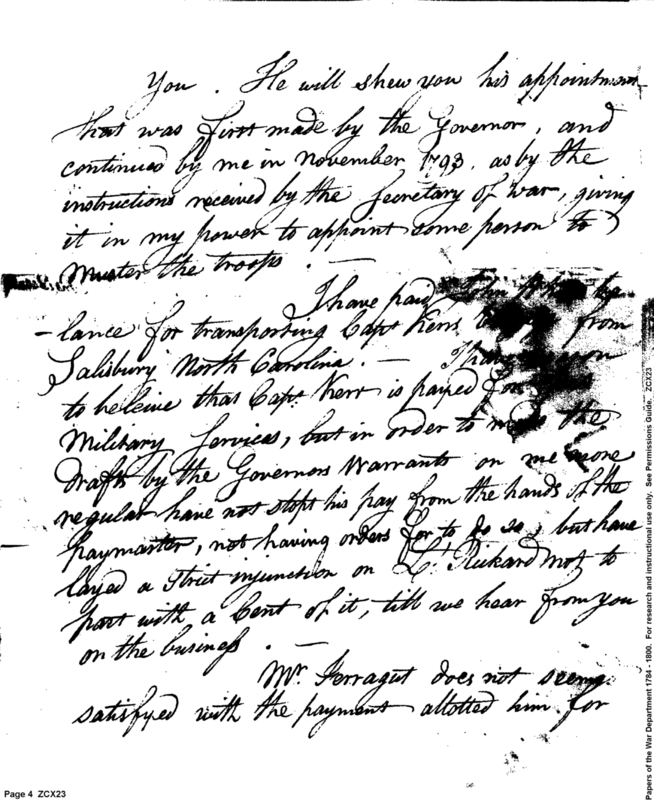 You . He will shew you his appointment
that was first made by the Governor, and
continued by me in November 1793, as by the
instructions received by the Secretary of War, giving
it in my power to appoint some person to
Muster the troops . —
I have paid John
lance for transporting Capt Kerrs from
Salisbury North Carolina. —
to beleive that Capt. Kerr is payed for
Military Services, but in order to the
drafts by the Governors Warrants on me more
regular have not stopt his pay from the hands of the
paymaster, not having orders for to do so, but have
layed a Strict injunction on Lt. Rickard not to
part with a Cent of it, till we hear from you
on the business . —
Mr. Ferragut does not seem
satisfyed with the payment allotted him for
Page 4 ZCX23
Papers of the War Department 1784 - 1800. For research and instructional use only. See Permissions Guide. ZCX23